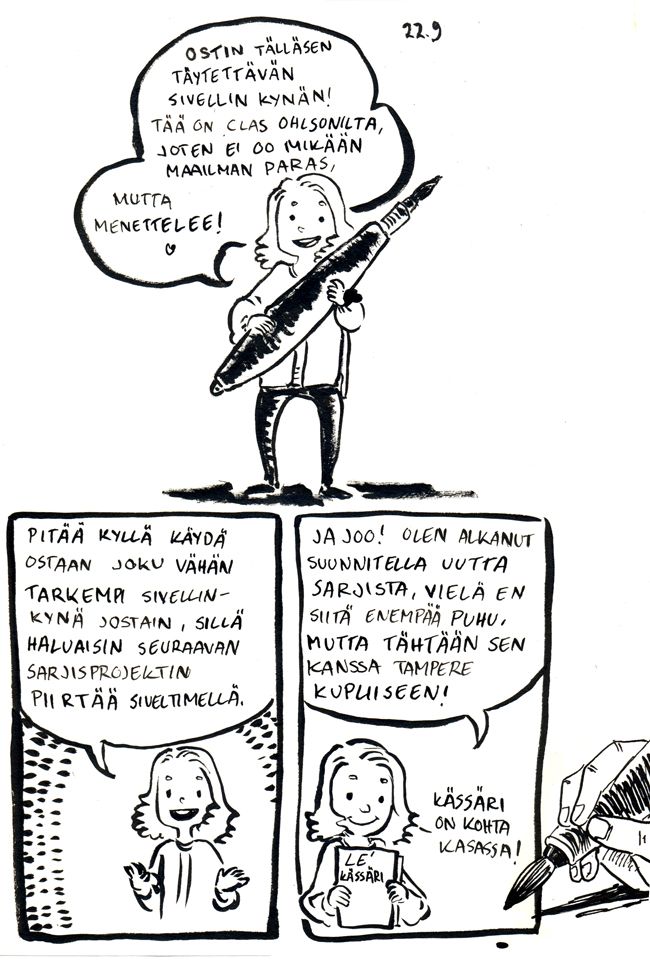 22.9
OSTIN TÄLLÄSEN
TÄYTETTÄVÄN
SIVELLIN KYNÄN!
TÄÄ ON CLAS OHLSONILTA,
JOTEN EI OO MIKÄÄN
MAAILMAN PARAS,
MUTTA
MENETTELEE!
PITÄÄ KYLLÄ KÄYDÄ
OSTAAN JOKU VÄHÄN
TARKEMPI SIVELLIN-
KYNÄ JOSTAIN, SILLÄ
HALUAISIN SEURAAVAN
SARJISPROJEKTIN
PIIRTÄÄ SIVELTIMELLÄ.
JA JOO! OLEN ALKANUT
SUUNNITELLA UUTTA
SARJISTA, VIELÄ EN
SIITÄ ENEMPÄÄ PUHU,
MUTTA TÄHTÄÄN SEN
KANSSA TAMPERE
KUPLIISEEN!
KÄSSÄRI
ON KOHTA
KASASSA!
LE'
KÄSSÄRI